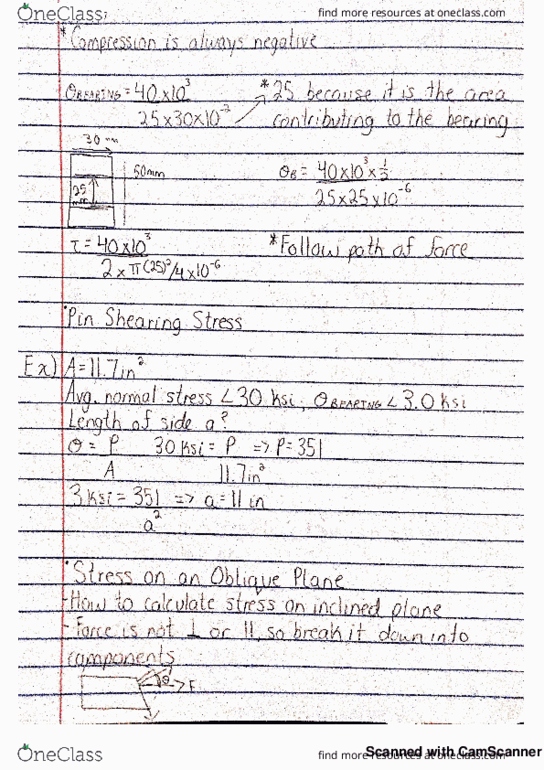 OneClass
find more resources at oneclass.com
* Compression is always negative
σBEARING = 40x10³
25x30x10⁻³
* 25 because it is the area
contributing to the bearing
30 mm
50mm
25 mm
σB = 40x10³x½
25x25x10⁻⁶
τ = 40x10³
2xπ(25)²/4x10⁻⁶
*Follow path of force
Pin Shearing Stress
Ex) A=11.7in²
Avg. normal stress < 30 ksi, σBEARING < 3.0 ksi
Length of side a?
σ = P/A 30 ksi = P/11.7in² => P=351
3 ksi = 351/a² => a=11 in
Stress on an Oblique Plane
-How to calculate stress on inclined plane
-Force is not ⊥ or ||, so break it down into
components
θ F
OneClass
find more resources at oneclass.com
Scanned with CamScanner